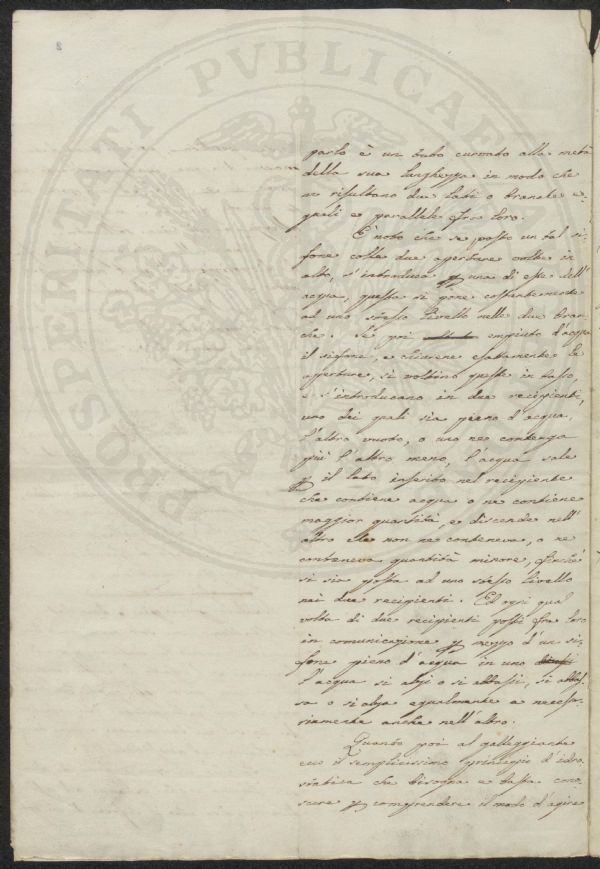 2
PROSPERITATI PVBLICAE
parlo è un tubo curvato alla metà
della sua lunghezza in modo che
ne risultano due lati o branche e-
guali e parallele fra loro.
È noto che se posto un tal si-
fone colle due aperture volte in
alto, s'introduca p una di esse dell'
acqua, questa si pone costantemente
ad uno stesso livello nelle due bran-
che. Se poi empiuto d'acqua
il sifone, e chiusene esattamente le
aperture, si voltino queste in basso,
e s'introducano in due recipienti,
uno dei quali sia pieno d'acqua,
l'altro vuoto, o uno ne contenga
più l'altro meno, l'acqua sale
p il lato inserito nel recipiente
che contiene acqua o ne contiene
maggior quantità, e discende nell'
altro che non ne conteneva, o ne
conteneva quantità minore, finchè
si sia posta ad uno stesso livello
nei due recipienti. Ed ogni qual
volta di due recipienti posti fra loro
in comunicazione p mezzo d'un si-
fone pieno d'acqua in uno
l'acqua si alzi o si abbassi, si abbas-
sa o si alza egualmente e necessa-
riamente anche nell'altro.
Quanto poi al galleggiante
ecco il semplicissimo principio d'idro-
statica che bisogna e basta cono-
scere p comprendere il modo d'agire